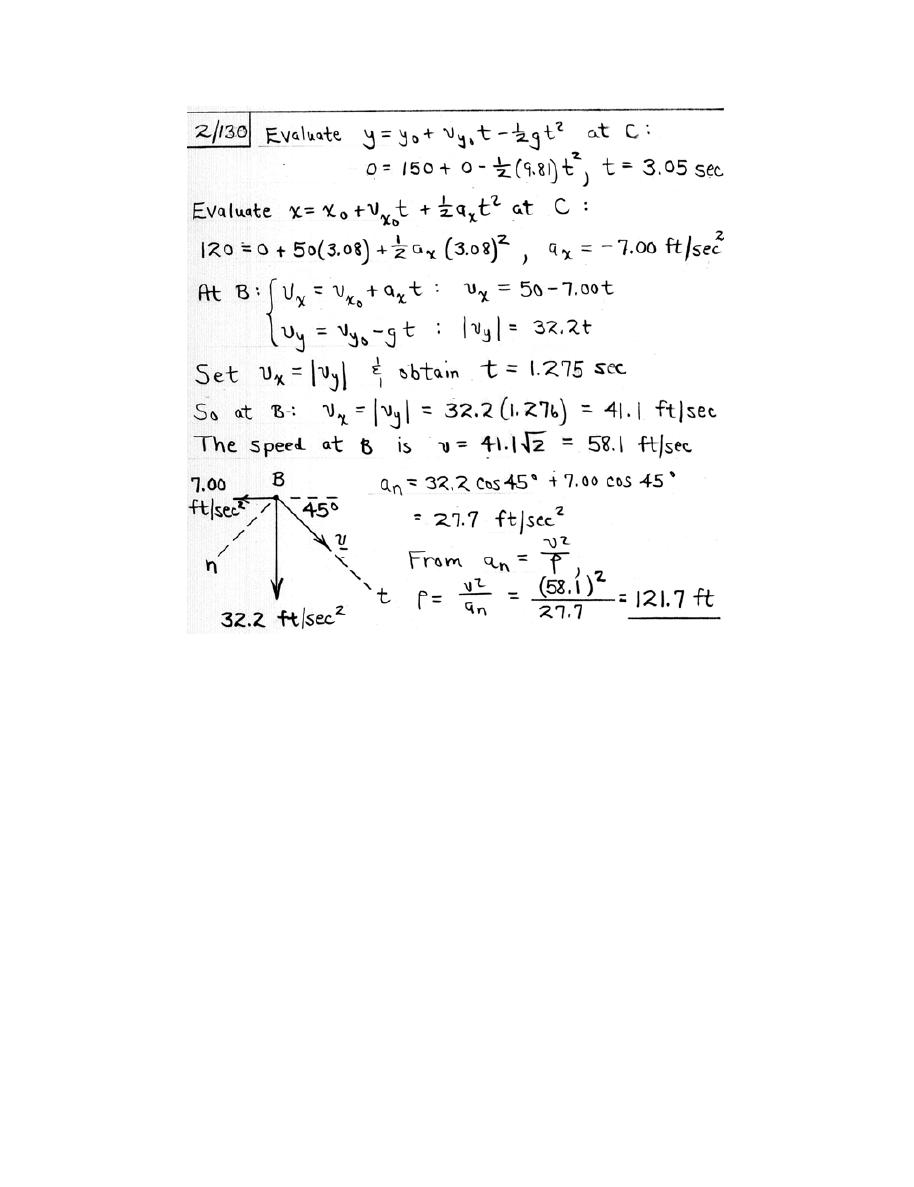 2/130 Evaluate y = y₀ + v_y₀ t - ½gt² at C:
0 = 150 + 0 - ½(9.81)t², t = 3.05 sec
Evaluate x = x₀ + v_x₀ t + ½a_x t² at C :
120 = 0 + 50(3.08) + ½ a_x (3.08)², a_x = -7.00 ft/sec²
At B: { v_x = v_x₀ + a_x t : v_x = 50 - 7.00t
v_y = v_y₀ - gt : |v_y| = 32.2t
Set v_x = |v_y| & obtain t = 1.275 sec
So at B: v_x = |v_y| = 32.2 (1.276) = 41.1 ft/sec
The speed at B is v = 41.1√2 = 58.1 ft/sec
7.00 ft/sec²
B
45°
v
n
t
32.2 ft/sec²
a_n = 32.2 cos 45° + 7.00 cos 45°
= 27.7 ft/sec²
From a_n = v²/ρ,
ρ = v²/a_n = (58.1)²/27.7 = 121.7 ft